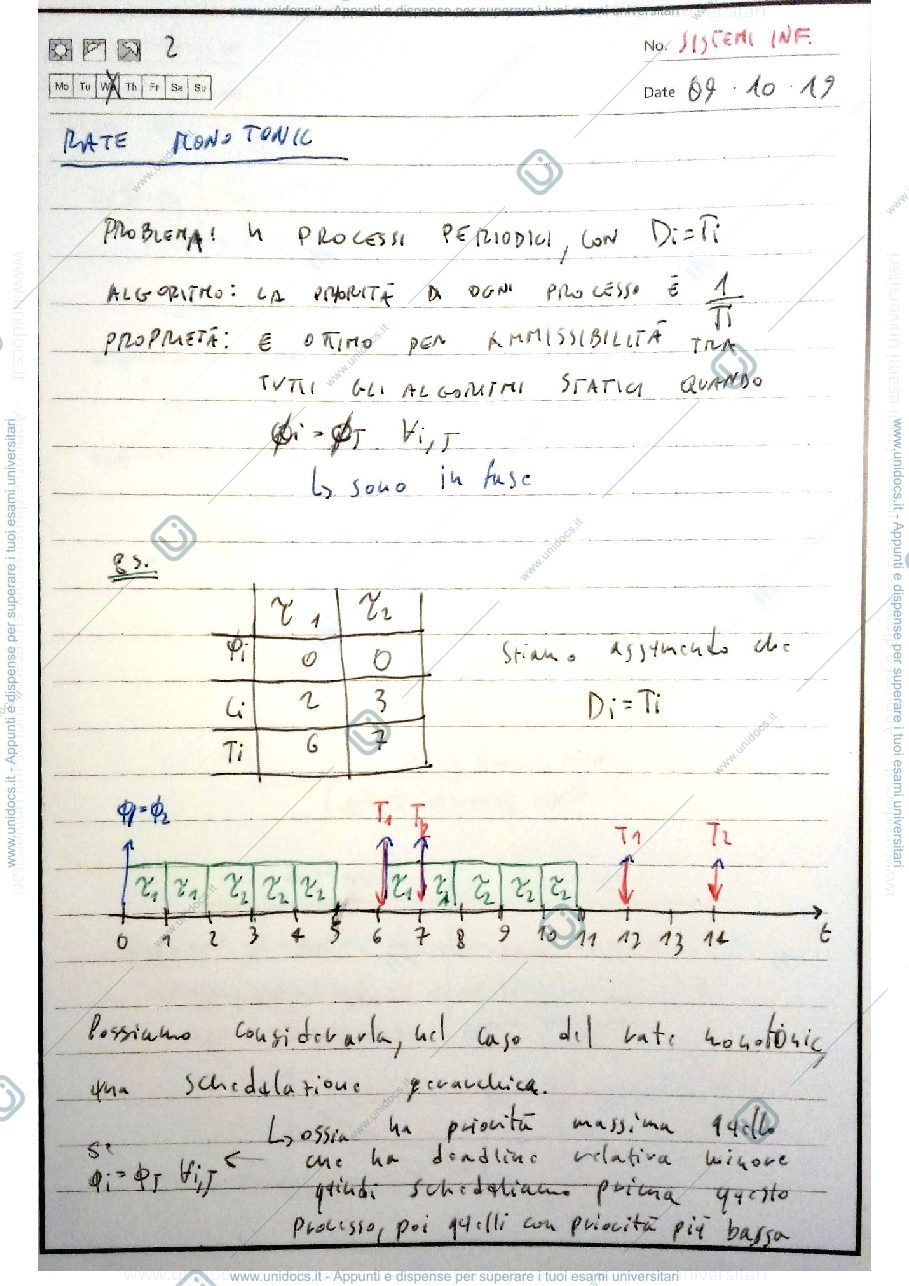 www.unidocs.it - Appunti e dispense per superare i tuoi esami universitari
2
No. SISTEMI INF.
Mo Tu We Th Fr Sa Su
Date 09 · 10 · 19
RATE MONOTONIC
PROBLEMA: n PROCESSI PERIODICI, CON Di=Ti
ALGORITMO: LA PRIORITÀ DI OGNI PROCESSO È 1/Ti
PROPRIETÀ: È OTTIMO PER AMMISSIBILITÀ TRA
TUTTI GLI ALGORITMI STATICI QUANDO
ϕi = ϕJ ∀i,J
↳ sono in fase
Es.
τ1 τ2
φi 0 0
Ci 2 3
Ti 6 7
Stiamo assumendo che
Di=Ti
ϕ1=ϕ2 T1 T2 T1 T2
τ1 τ1 τ2 τ2 τ2 τ1 τ1 τ2 τ2 τ2
0 1 2 3 4 5 6 7 8 9 10 11 12 13 14 t
Possiamo considerarla, nel caso del rate monotonic,
una schedulazione gerarchica.
↳ ossia ha priorità massima quello
che ha deadline relativa minore
se ϕi = ϕJ ∀i,J ←
quindi scheduliamo prima questo
processo, poi quelli con priorità più bassa
www.unidocs.it - Appunti e dispense per superare i tuoi esami universitari